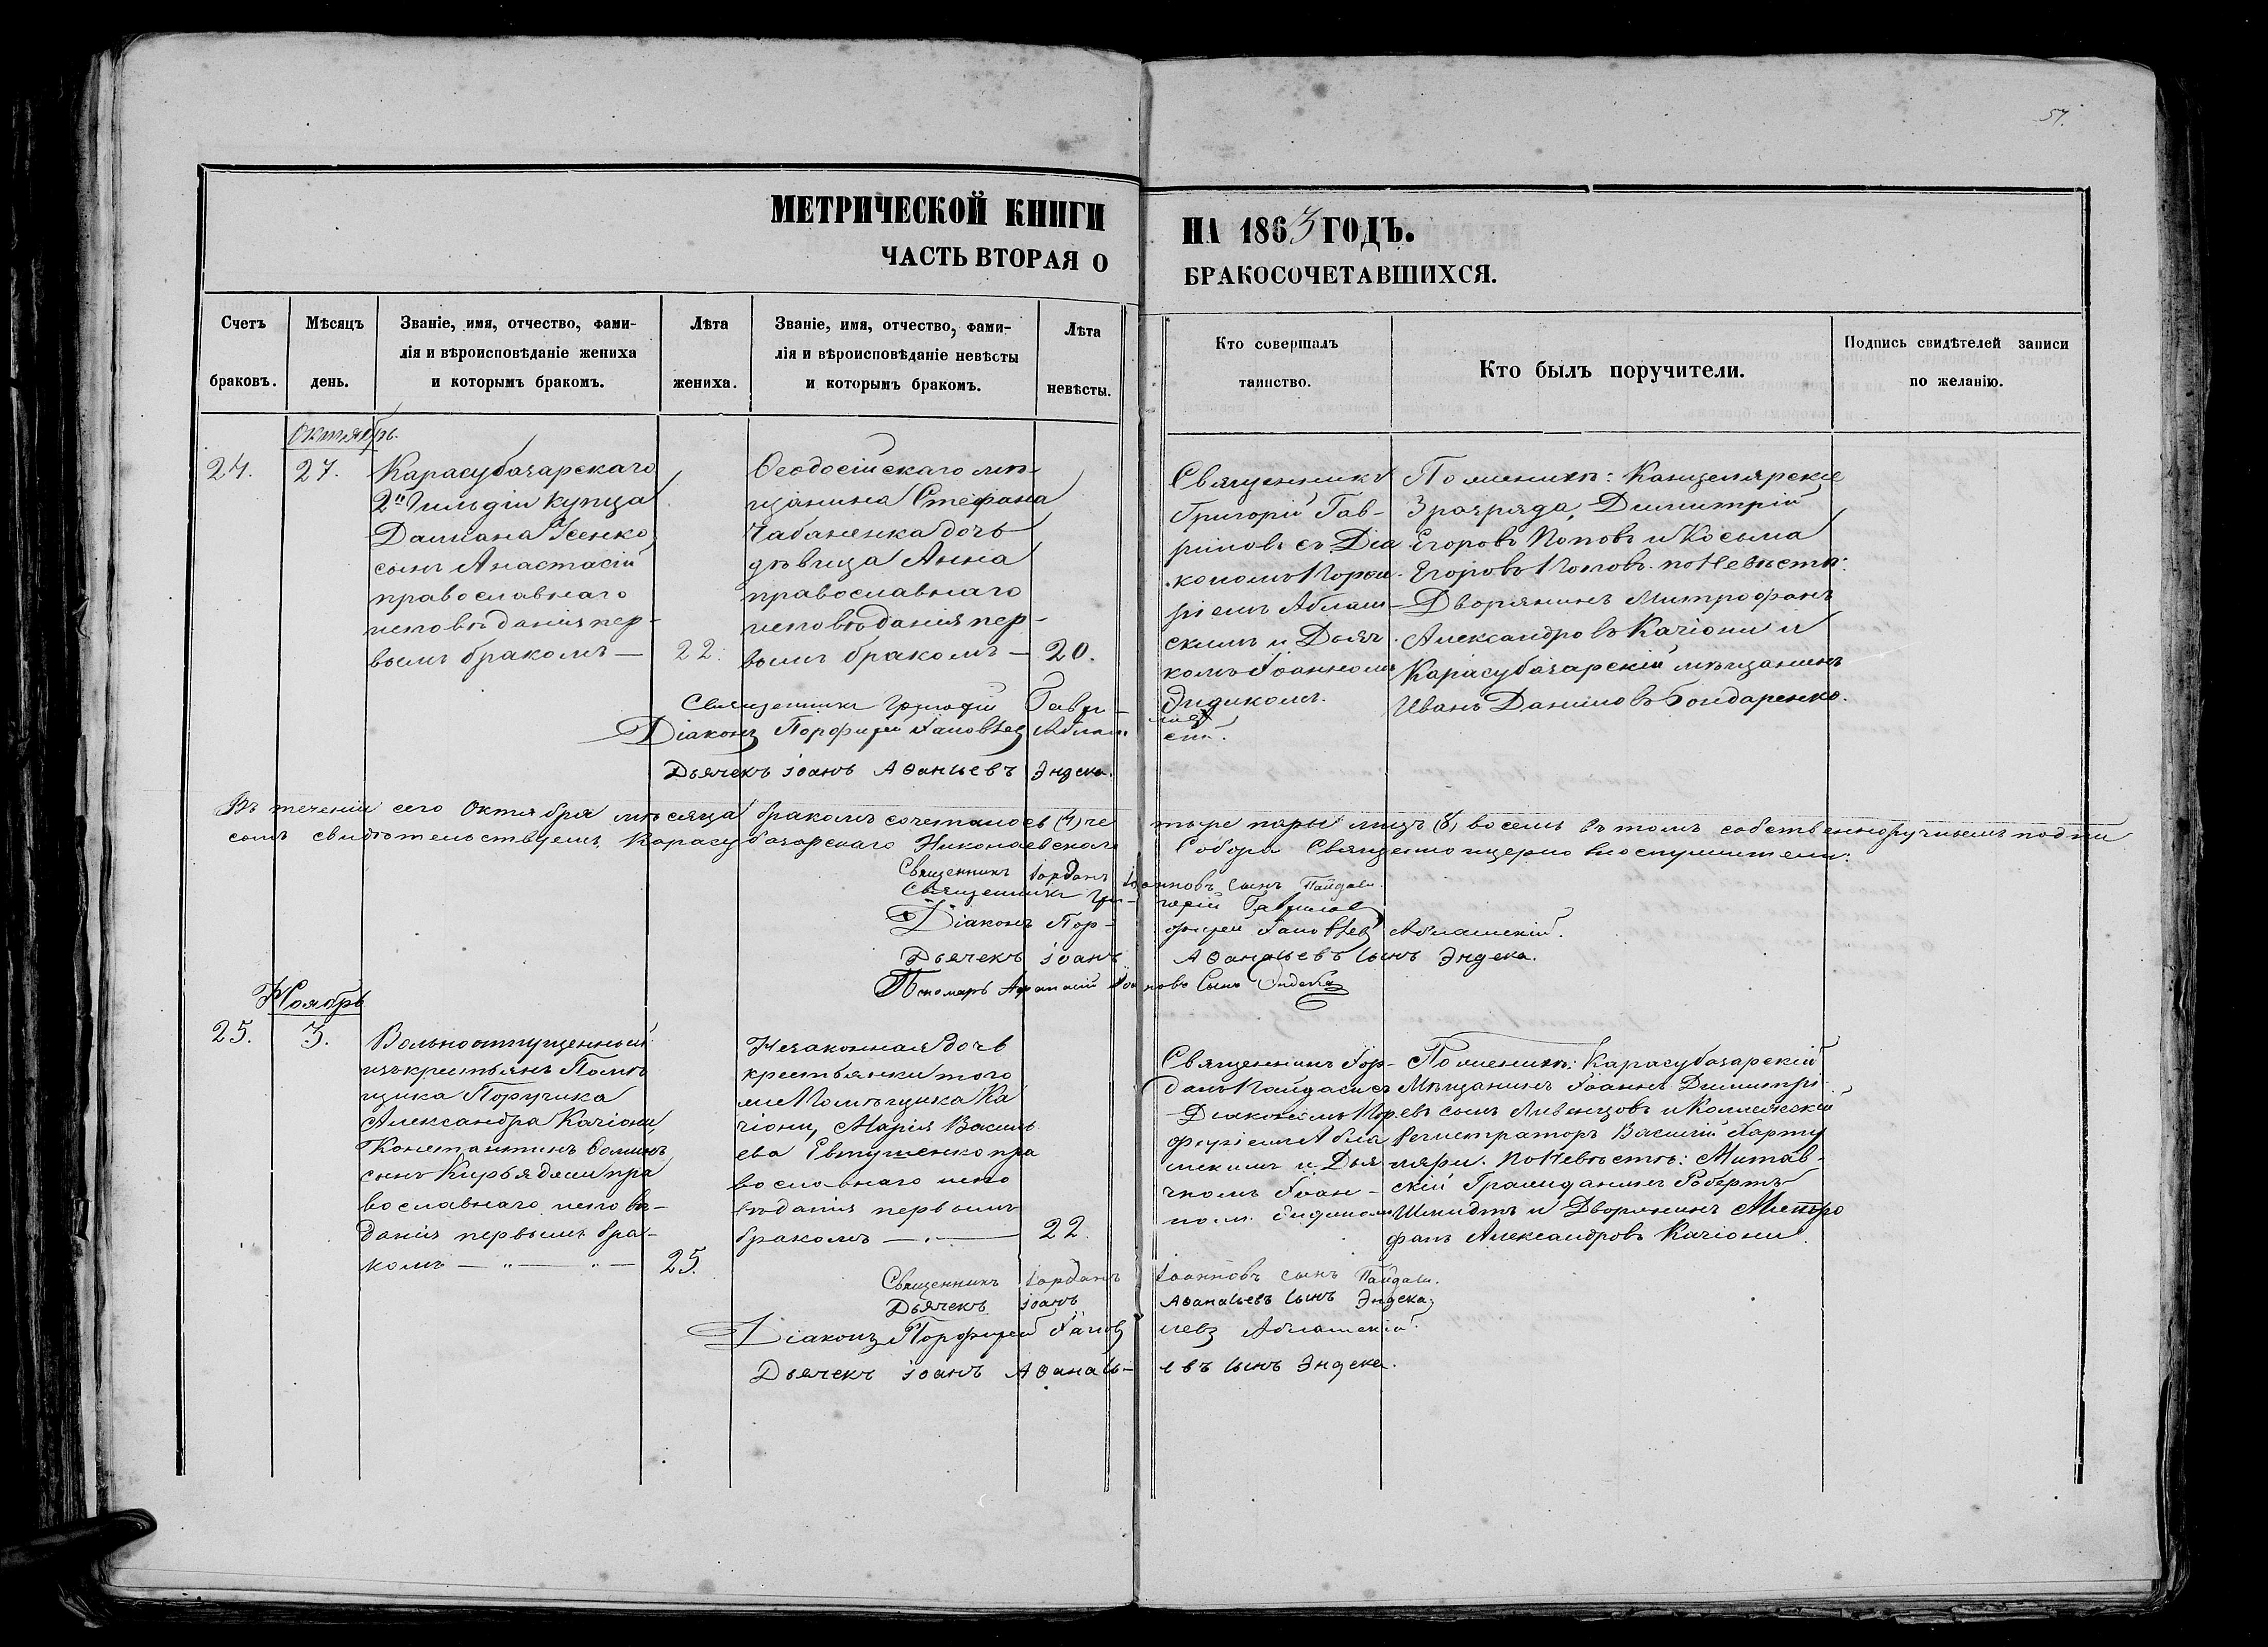 57.
МЕТРИЧЕСКОЙ КНИГИ
ЧАСТЬ ВТОРАЯ О
НА 1863 ГОДЪ.
БРАКОСОЧЕТАВШИХСЯ.
Счетъ
браковъ.
Мѣсяцъ
день.
Званіе, имя, отчество, фами-
лія и вѣроисповѣданіе жениха
и которымъ бракомъ.
Лѣта
жениха.
Званіе, имя, отчество, фами-
лія и вѣроисповѣданіе невѣсты
и которымъ бракомъ.
Лѣта
невѣсты.
Кто совершалъ
таинство.
Кто былъ поручители.
Подпись свидѣтелей записи
по желанію.
Октябрь.
24.
27.
Карасубазарскаго
2й Гильдіи купца
Даміана Усенко
сынъ Анастасій
православнаго
исповѣданія пер-
вымъ бракомъ —
22.
Ѳеодосійскаго мѣ-
щанина Стефана
Чабаненка дочь
дѣвица Анна
православнаго
исповѣданія пер-
вымъ бракомъ —
20.
Священникъ
Григорій Гав-
риловъ съ Діа
кономъ Порфи-
ріемъ Аблаш-
скимъ и Дьяч-
комъ Іоанномъ
Эндикомъ.
По женихѣ: Канцелярскіе
3 разряда, Димитрій
Егоровъ Поповъ и Косьма
Егоровъ Поповъ. по Невѣстѣ:
Дворянинъ Митрофанъ
Александровъ Качіони и
Карасубазарскій мѣщанинъ
Иванъ Даниловъ Бондаренко.
Священникъ Григорій Гаври-
ловъ
Діаконъ Порфирій Іаковлев Аблаш-
скій.
Дьячекъ Іоанъ Аѳанасьевъ Эндека.
Въ теченіи сего Октября мѣсяца бракомъ сочеталось (4) че тыре пары лицъ (8) восемь въ томъ собственноручнымъ подпи
сомъ свидѣтельствуемъ, Карасубазарскаго Николаевскаго Собора Священноцерковнослужители:
Священникъ Іорданъ Іоанновъ сынъ Пайдаси.
Священникъ Гри- горій Гавриловъ
Діаконъ Пор- фирій Іаковлевъ Аблашскій.
Дьячекъ Іоанъ Аѳанасьевъ сынъ Эндека.
Пономарь Афанасій Іоа новъ Сынъ Эндека
Ноябрь
25.
3.
Вольноотпущенный
изъ крестьянъ Помѣ
щика Поручика
Александра Качіони,
Константинъ Ѳоминъ
сынъ Кирьяджи пра
вославнаго исповѣ-
данія первымъ бра-
комъ — „ — „ —
25.
Незаконная дочь
крестьянки того
же Помѣщика Ка
чіони, Марія Василь
ева Евтушенко пра
вославнаго испо
вѣданія первымъ
бракомъ — „ —
22.
Священникъ Іор-
данъ Пайдаси съ
Діакономъ Пор
фиріемъ Абла
шскимъ и Дья
чкомъ Іоан-
номъ Эндикомъ
По женихѣ: Карасубазарскій
Мѣщанинъ Іоаннъ Димитрі-
евъ сынъ Ливенцовъ и Коллежскій
Регистраторъ Василій Харту
ляри. По Невѣстѣ: Митав-
скій Гражданинъ Робертъ
Шмидтъ и Дворянинъ Митро
фанъ Александровъ Качіони.
Священникъ Іорданъ Іоанновъ сынъ Пайдаси.
Дьячекъ Іоанъ Аѳанасьевъ сынъ Эндека.
Діаконъ Порфирій Іаков левъ Аблашскій.
Дьячекъ Іоанъ Аѳанась- евъ сынъ Эндека.